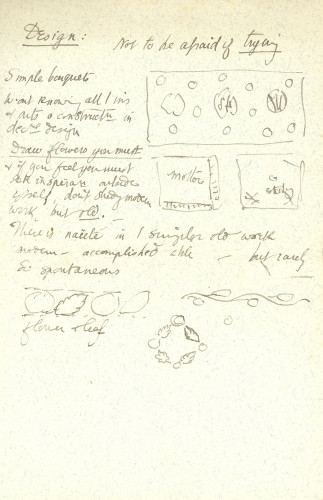 Design:
Not to be afraid of trying
Simple bouquets
Want knowing all ins
& outs & construction in
design
Draw flowers you must
& if you feel you must
seek inspiration outside
y'self, don't study modern
work but old.
motto
There is naïveté in simpler old work
modern - accomplished - but rarely
so spontaneous
flower & leaf